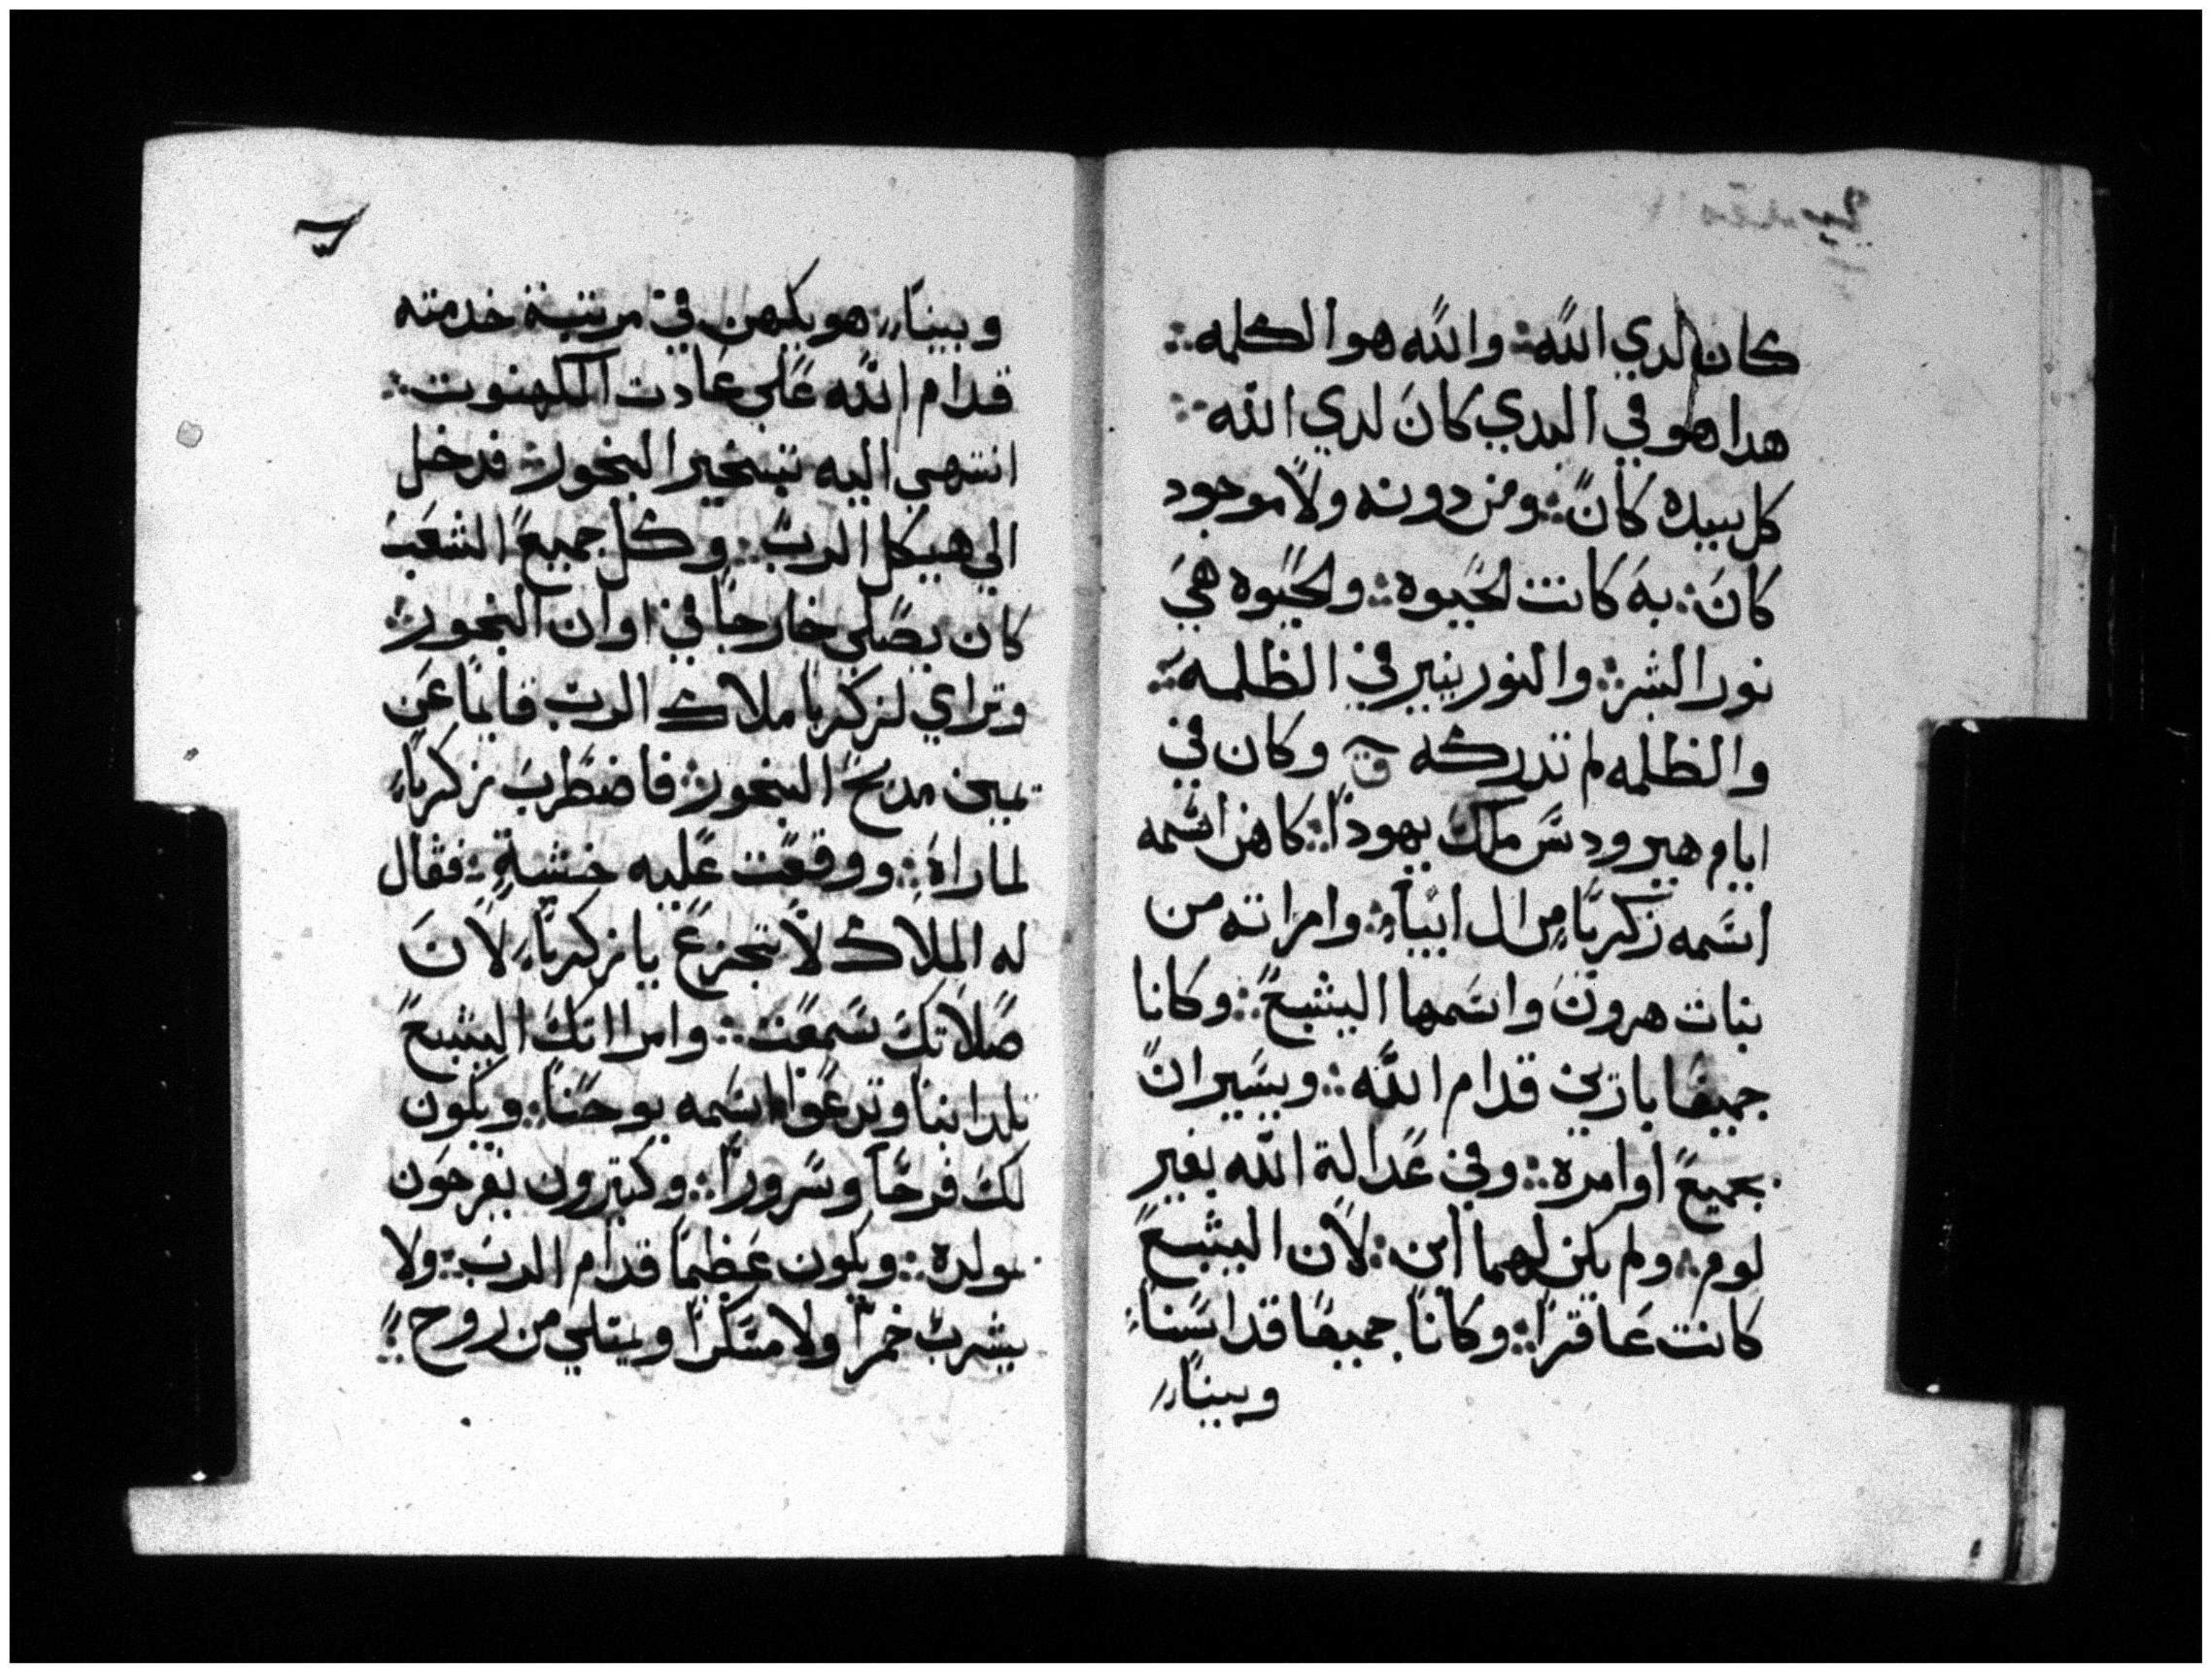 كان لدي الله: والله هو الكلمه:
هدا هو في البدي كانَ لدي الله
كل بيده كانً: ومن دونه ولاً موجود
كانَ: به كانت لحَيوه: ولحَيوه هي
نور البشر: والنور ينير في الظلمه:
والظلمه لم تدركه وكان في
ايام هيرودسَ ملك يهوداً: كاهن اسمه
اسَمه زكرياً من ال ابياً: وامراته من
بنات هرونَ واسَمها اليشبعً: وكانا
جميعًا بارين قدام اللّه: ويسَيرانً
بجميعً اوامره: وفي عَدالة الله بغير
لوم: ولم يكن لهما ابن: لاًن اليشبعً
كانت عَاقراً: وكاناً جميعًا قد اسَنا
وبيناً
وبيناً هو يكهن في مرتبة خدمته
قدام اللّه عَلي عَادت الكهنوت:
انتهي اليه تبخير البخور: فدخل
الي هيكل الربّ: وكل جميعً الشعَب
كان يصَلي خارجاً في اوان البخور:
وتراي لزكريا ملاك الربّ قايماً عَن
يمين مدبحً البخور: فاضطربَ زكرياً
لما راه: ووقعَت عَليه خشية: فقال
له الملاك لاً تجزعً يا زكرياً لاًنَ
صَلاَتكَ سَمعَت: وامرااتكَ اليشبعً
تلد ابناً وتدعَوا اسَمه يوحَناً: ويكون
لكَ فرحًاً وسَروراً: وكتيرون يفرحَون
بمولده: ويكون عَظيماً قدام الربّ: ولا
يشربّ خمراً ولا مسَكراً ويمتلي من روح: